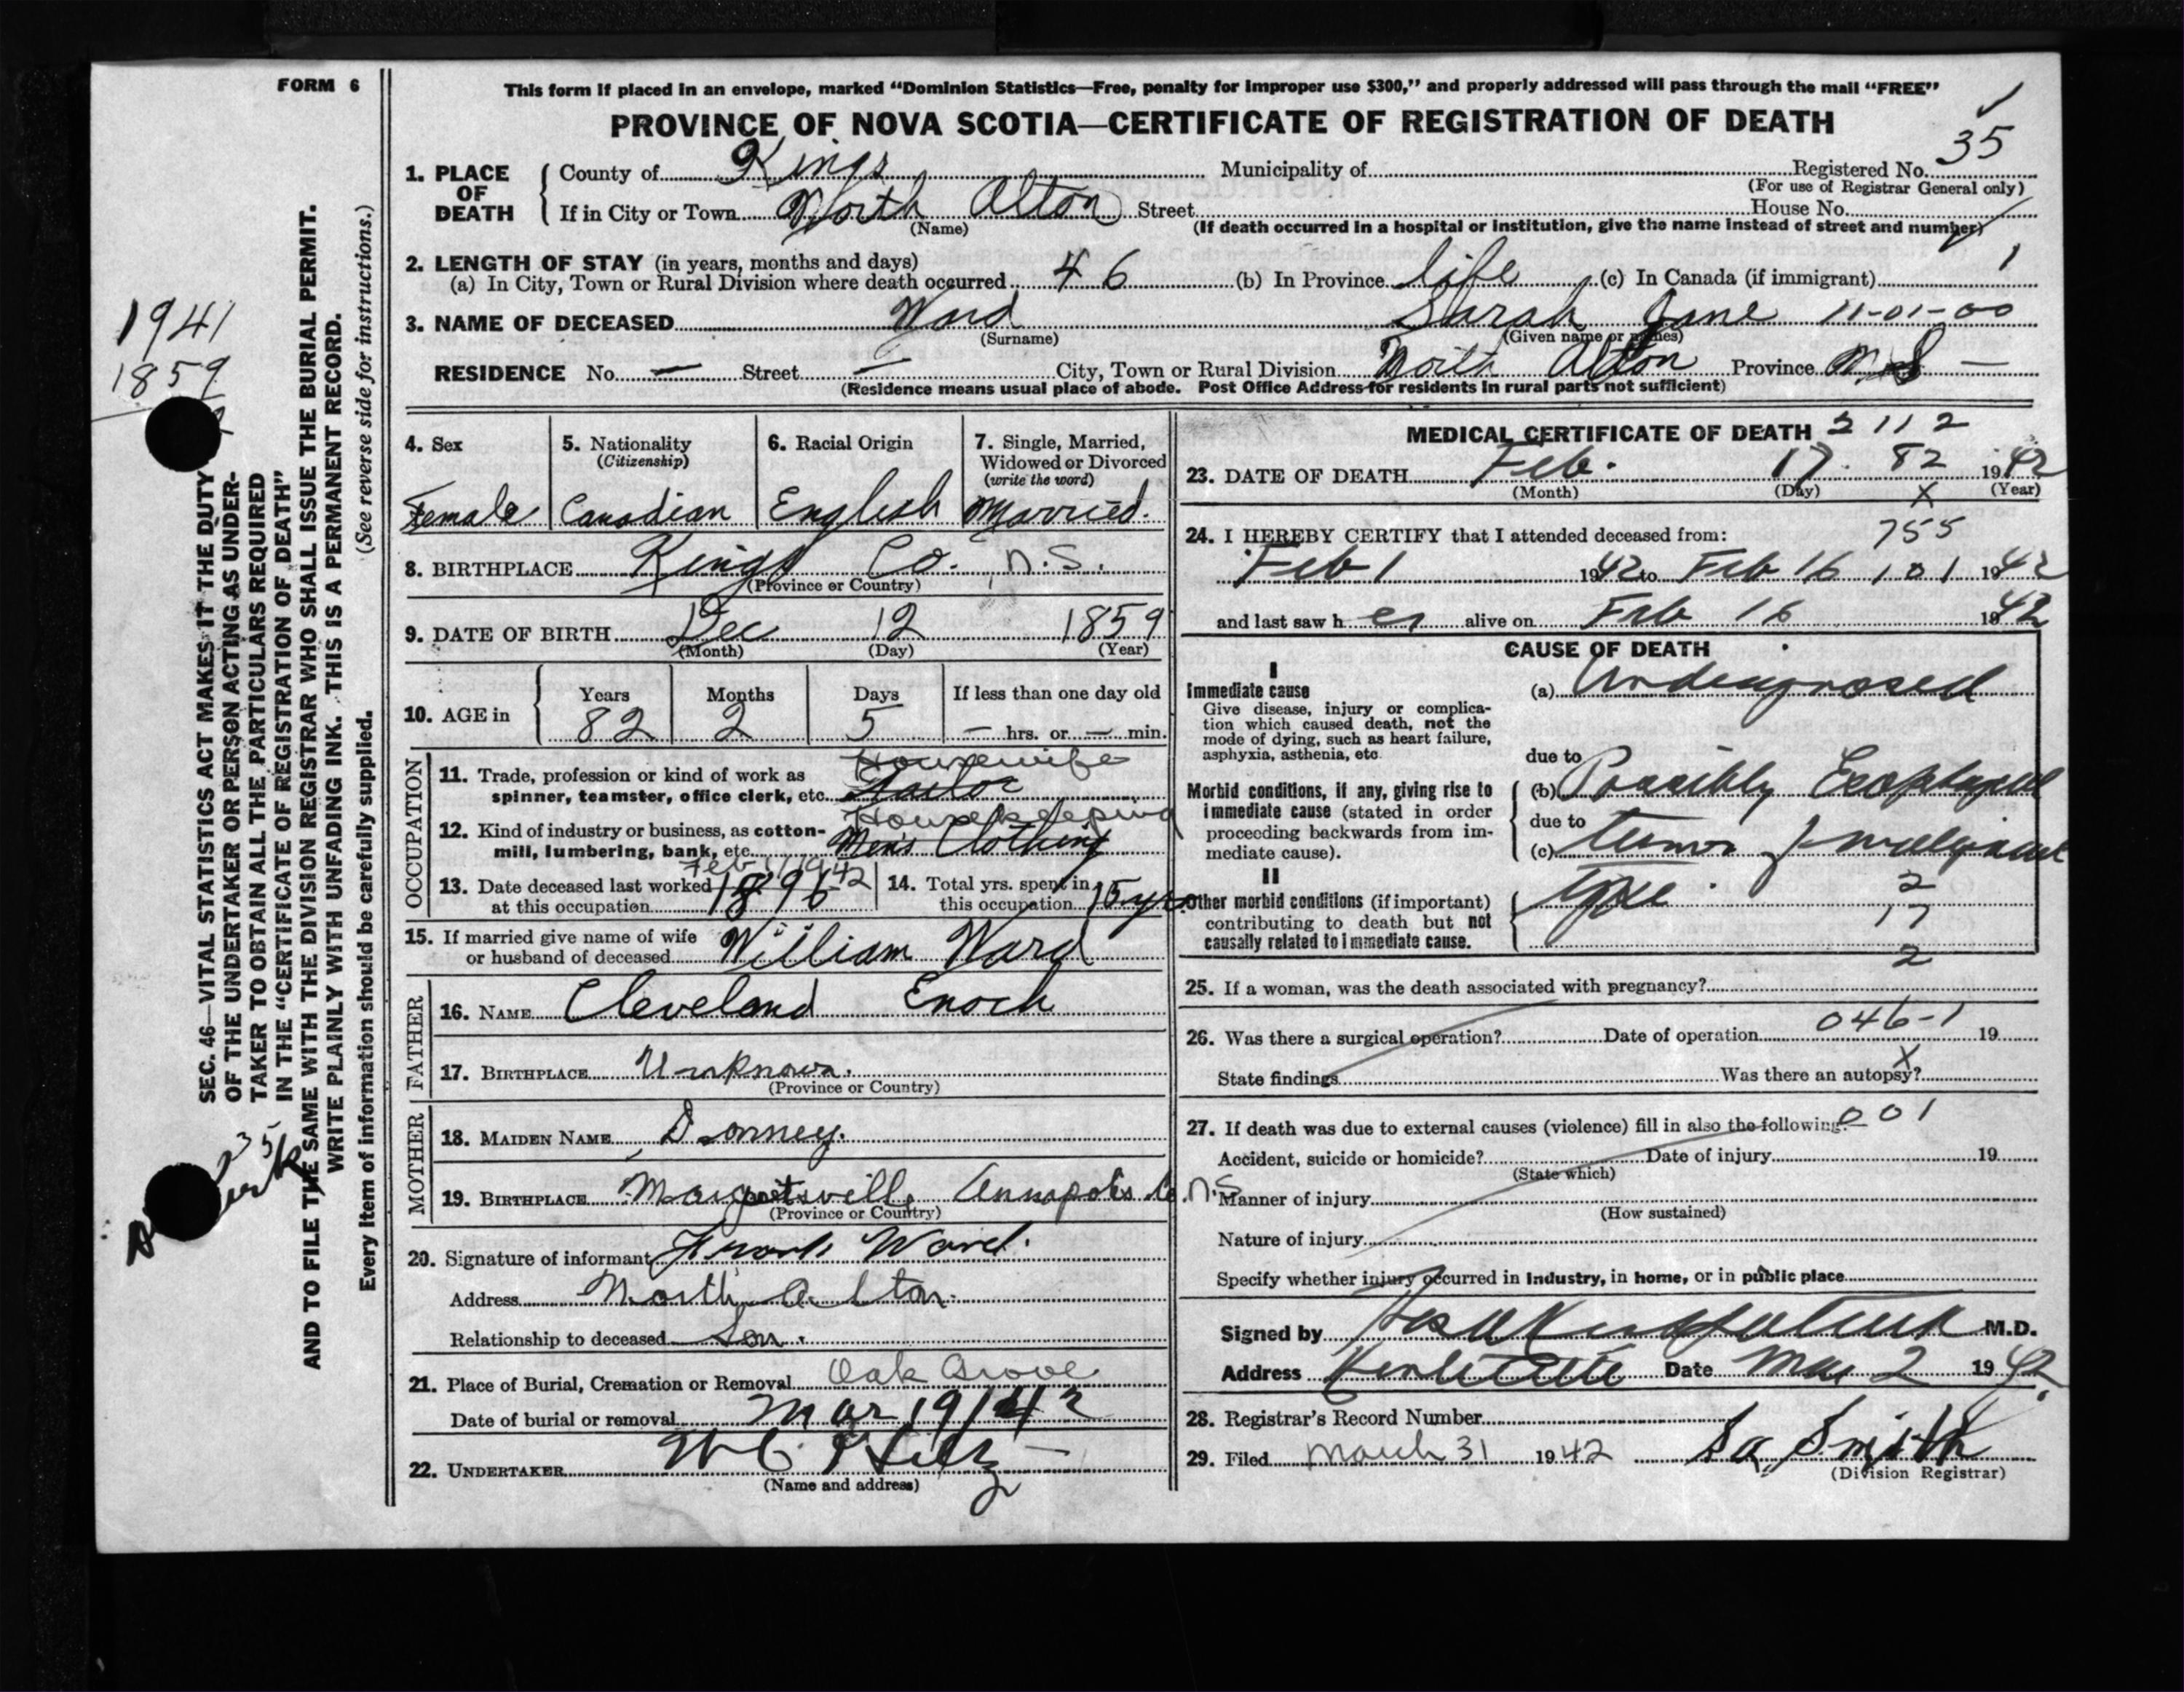 FORM 6
This form if placed in an envelope, marked "Dominion Statistics—Free, penalty for improper use $300," and properly addressed will pass through the mail "FREE"
PROVINCE OF NOVA SCOTIA—CERTIFICATE OF REGISTRATION OF DEATH
1. PLACE OF DEATH
County of Kings Municipality of Registered No. 35
(For use of Registrar General only)
If in City or Town North Alton Street House No.
(Name) (If death occurred in a hospital or institution, give the name instead of street and number)
2. LENGTH OF STAY (in years, months and days)
(a) In City, Town or Rural Division where death occurred 46 (b) In Province life (c) In Canada (if immigrant) 1
3. NAME OF DECEASED Ward Sarah Jane 11-01-00
(Surname) (Given name or names)
RESIDENCE No. — Street — City, Town or Rural Division North Alton Province N.S —
(Residence means usual place of abode. Post Office Address for residents in rural parts not sufficient)
4. Sex
Female
5. Nationality
(Citizenship)
Canadian
6. Racial Origin
English
7. Single, Married,
Widowed or Divorced
(write the word)
Married.
8. BIRTHPLACE Kings Co. N.S.
(Province or Country)
9. DATE OF BIRTH Dec 12 1859
(Month) (Day) (Year)
10. AGE in
Years Months Days If less than one day old
82 2 5 — hrs. or — min.
OCCUPATION
Housewife
11. Trade, profession or kind of work as
spinner, teamster, office clerk, etc. Tailor
Housekeeping
12. Kind of industry or business, as cotton-
mill, lumbering, bank, etc. Men's Clothing
Feb 1/1942
13. Date deceased last worked
at this occupation 1896
14. Total yrs. spent in
this occupation 15 yrs
15. If married give name of wife
or husband of deceased William Ward
FATHER
16. NAME Cleveland Enoch
17. BIRTHPLACE Unknown.
(Province or Country)
MOTHER
18. MAIDEN NAME
19. BIRTHPLACE Margretsville Annapolis Co. N.S
(Province or Country)
20. Signature of informant Frank Ward.
Address North Alton.
Relationship to deceased Son.
21. Place of Burial, Cremation or Removal Oak Grove
Date of burial or removal Mar 19/42
22. UNDERTAKER W C Hilz —
(Name and address)
MEDICAL CERTIFICATE OF DEATH 2112
23. DATE OF DEATH Feb. 17. 82 1942
(Month) (Day) X (Year)
24. I HEREBY CERTIFY that I attended deceased from: 755
Feb 1 1942 to Feb 16 101 1942
and last saw h er alive on Feb 16 1942
CAUSE OF DEATH
I
Immediate cause
Give disease, injury or complica-
tion which caused death, not the
mode of dying, such as heart failure,
asphyxia, asthenia, etc.
(a) Undiagnosed
due to
Morbid conditions, if any, giving rise to
immediate cause (stated in order
proceeding backwards from im-
mediate cause).
(b) Possibly Esophageal
due to
(c) tumor of malignant
II
Other morbid conditions (if important)
contributing to death but not
causally related to immediate cause.
type.
2
17
2
25. If a woman, was the death associated with pregnancy?
26. Was there a surgical operation? Date of operation 046-1 19
State findings Was there an autopsy? X
27. If death was due to external causes (violence) fill in also the following:— 001
Accident, suicide or homicide? Date of injury 19
(State which)
Manner of injury
(How sustained)
Nature of injury
Specify whether injury occurred in industry, in home, or in public place
Signed by M.D.
Address Kentville Date Mar 2 1942.
28. Registrar's Record Number
29. Filed March 31 1942 Smith
(Division Registrar)
1941
1859
35
SEC. 46—VITAL STATISTICS ACT MAKES IT THE DUTY
OF THE UNDERTAKER OR PERSON ACTING AS UNDER-
TAKER TO OBTAIN ALL THE PARTICULARS REQUIRED
IN THE "CERTIFICATE OF REGISTRATION OF DEATH"
AND TO FILE THE SAME WITH THE DIVISION REGISTRAR WHO SHALL ISSUE THE BURIAL PERMIT.
WRITE PLAINLY WITH UNFADING INK. THIS IS A PERMANENT RECORD.
Every item of information should be carefully supplied. (See reverse side for instructions.)